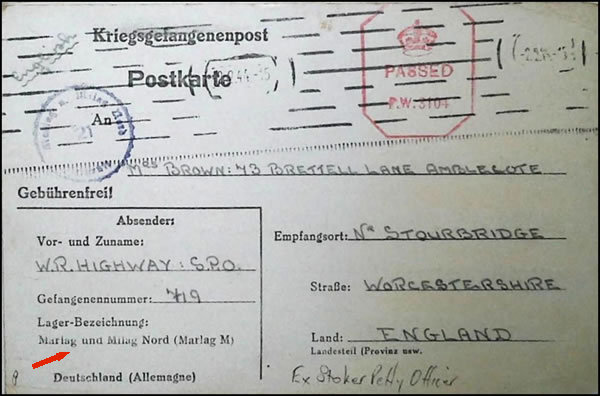 English
Kriegsgefangenenpost
Postkarte
PASSED
P.W. 3104
Marlag u. Milag Nord
21
An
Mrs BROWN: 73 BRETTELL LANE AMBLECOTE
Gebührenfrei!
Absender:
Vor- und Zuname:
W.R. HIGHWAY: S.P.O.
Gefangenennummer: 719
Lager-Bezeichnung:
Marlag und Milag Nord (Marlag M)
Deutschland (Allemagne)
Empfangsort: Nr STOURBRIDGE
Straße: WORCESTERSHIRE
Land: ENGLAND
Landesteil (Provinz usw.
Ex Stoker Petty Officer